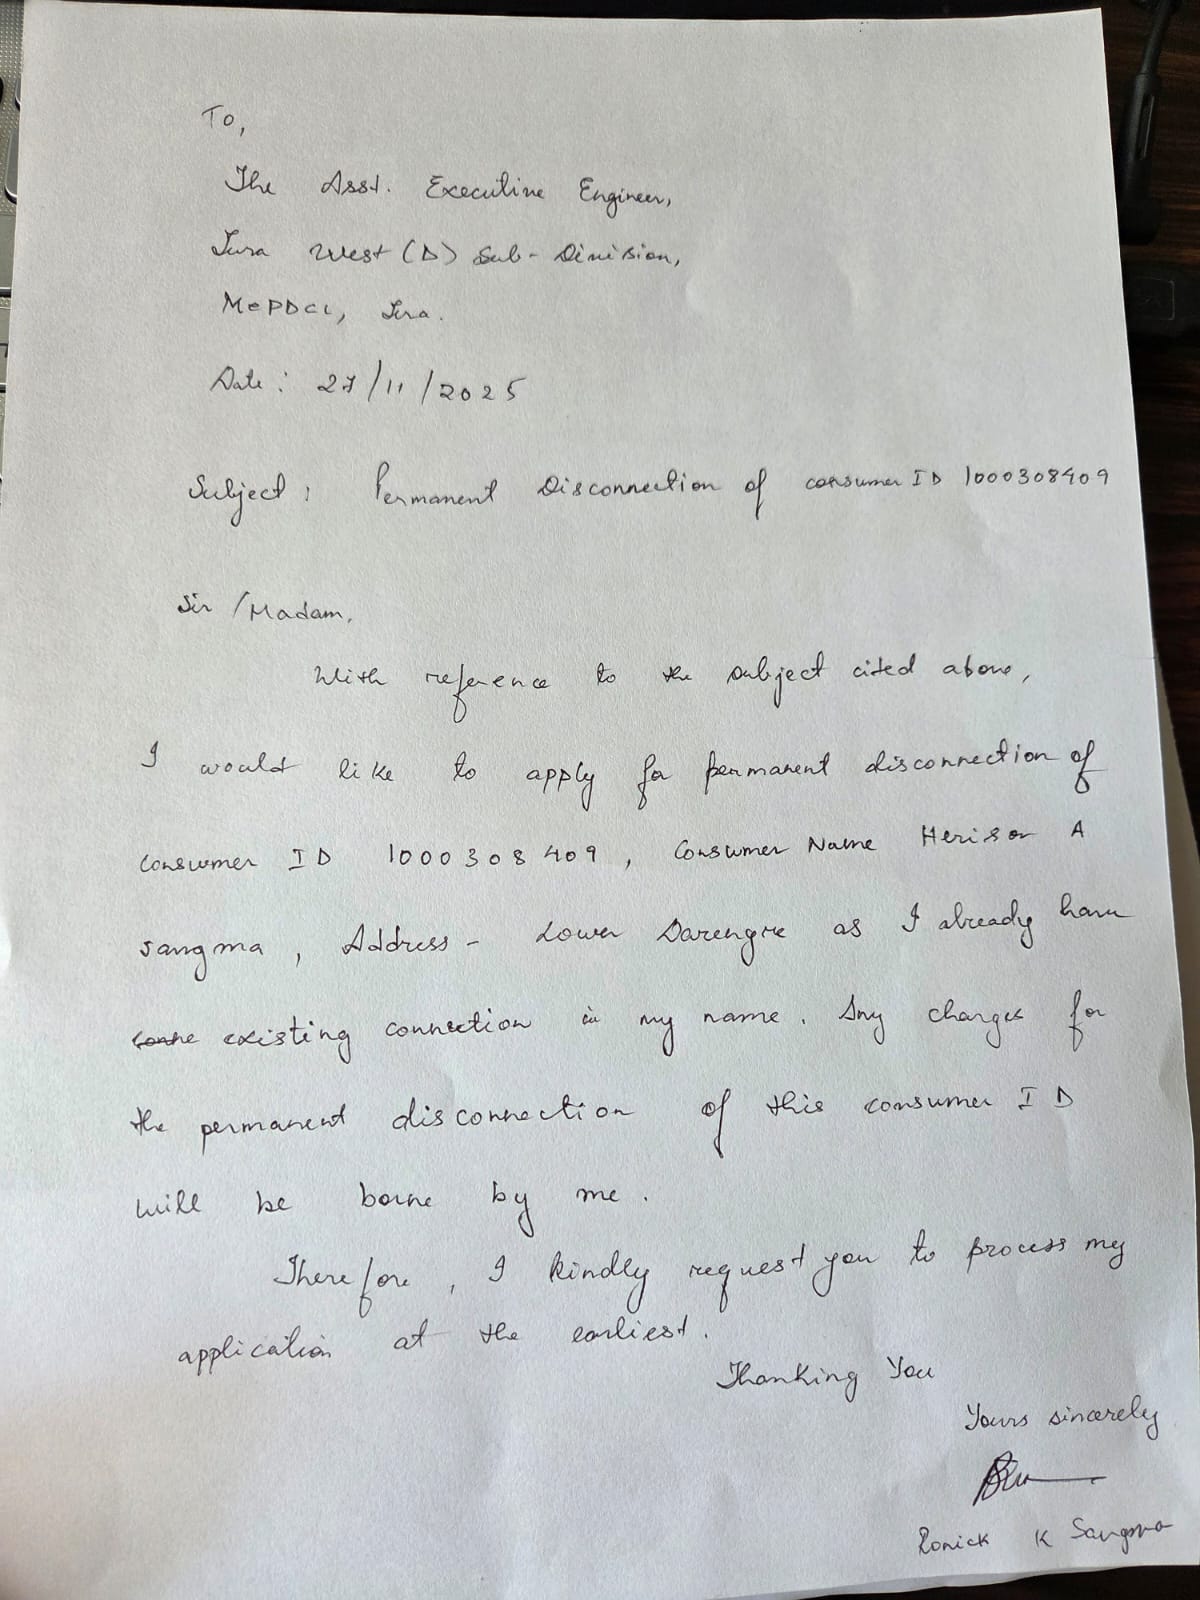 To,
The Asst. Executive Engineer,
Tura West (D) Sub-Division,
MePDCL, Tura.
Date: 27/11/2025
Subject: Permanent Disconnection of consumer ID 1000308409
Sir/Madam,
With reference to the subject cited above,
I would like to apply for permanent disconnection of
consumer ID 1000308409, Consumer Name Herison A
Sangma, Address - Lower Darengre as I already have
existing connection in my name. Any charges for
the permanent disconnection of this consumer ID
will be borne by me.
Therefore, I kindly request you to process my
application at the earliest.
Thanking You
Yours sincerely
Ronick K Sangma